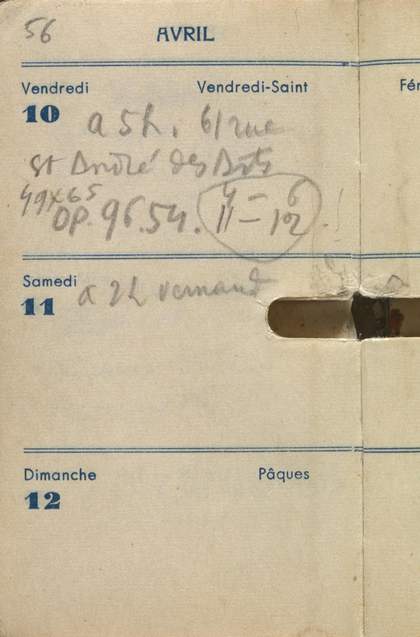 56
AVRIL
Vendredi Vendredi-Saint Fér
10 a 5h. 61 rue
St André des Arts
49x65 4 – 6
OP. 96.54. 11 – 12 !
Samedi
11 a 2h
Dimanche Pâques
12